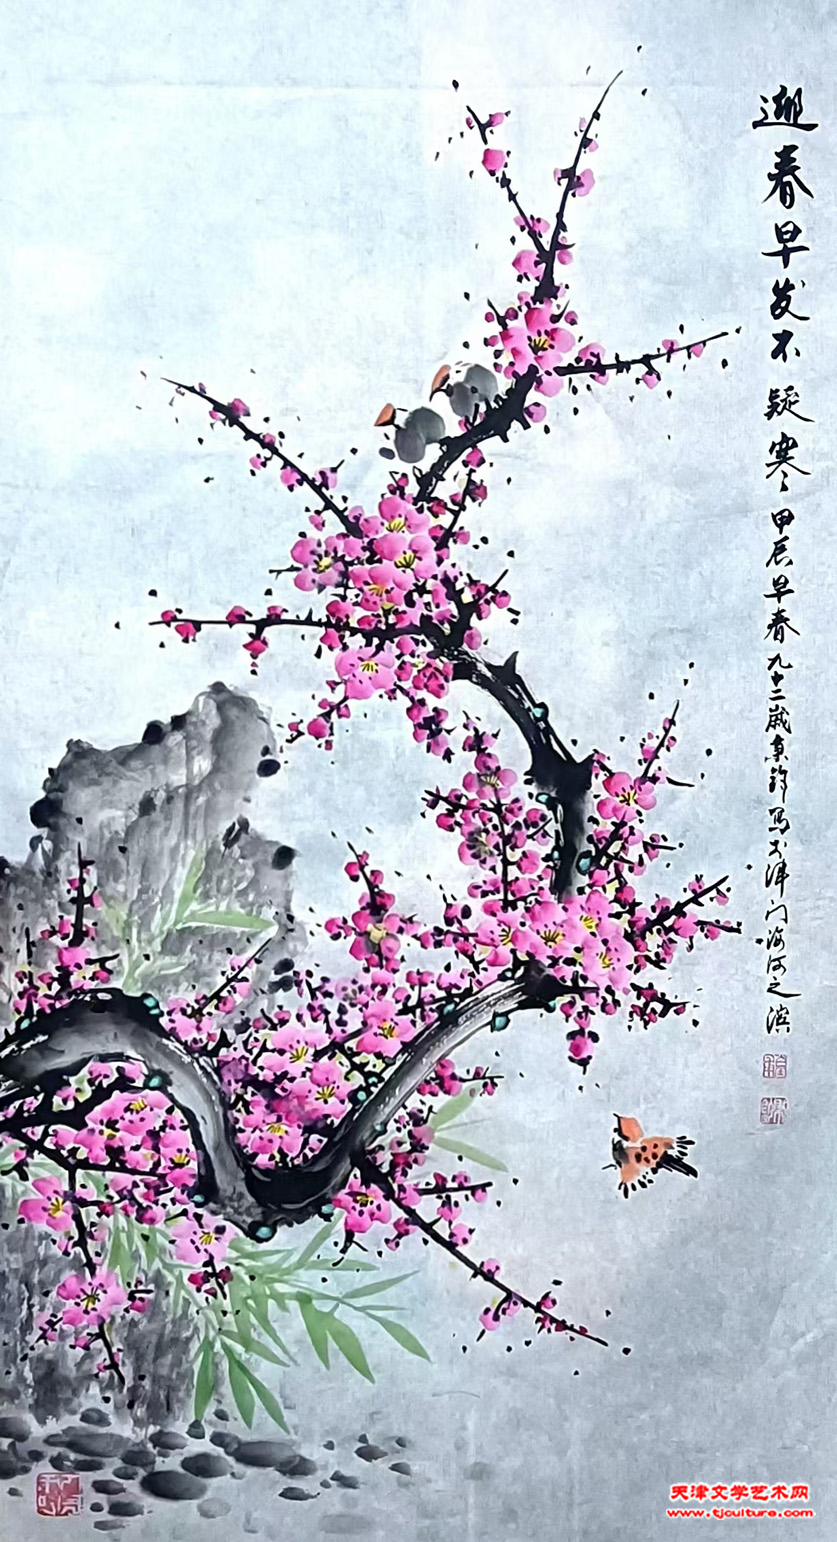 迎春早发不疑寒 甲辰早春九十二岁東鈞寫於津门海河之滨
天津文学艺术网
www.tjculture.com